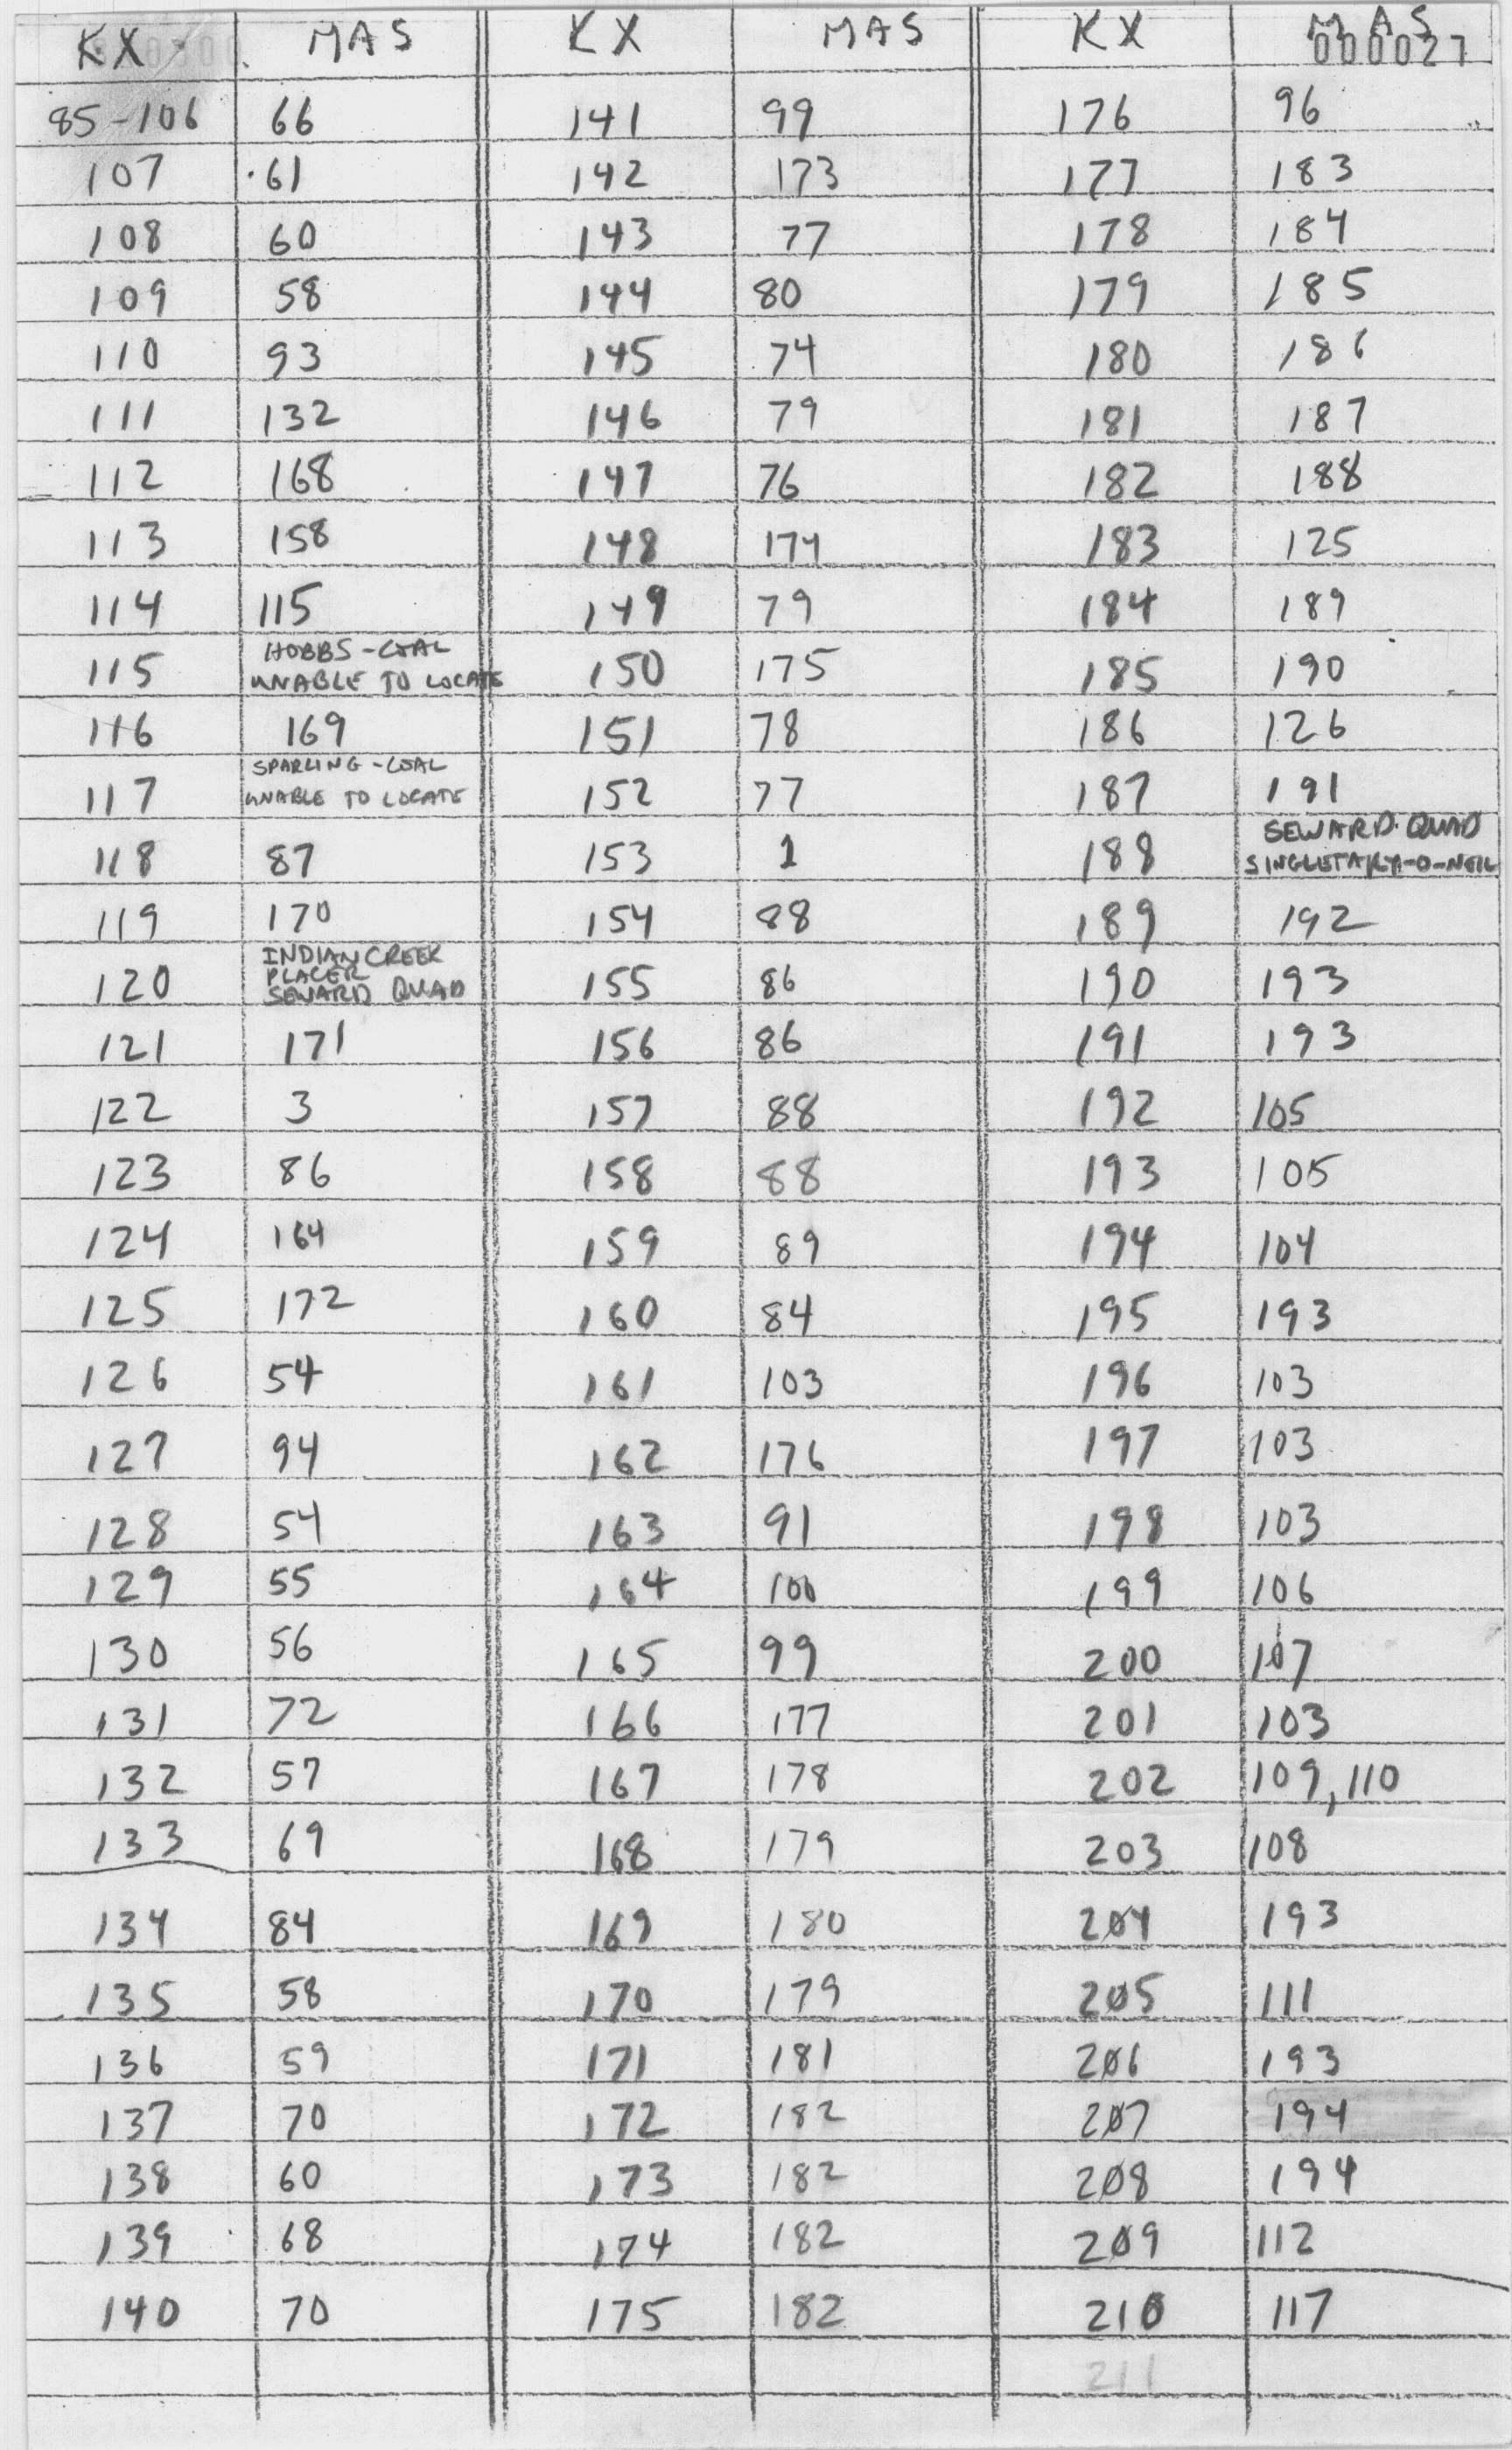 KX MAS KX MAS KX MAS
000027
85-106 66 141 99 176 96
107 61 142 173 177 183
108 60 143 77 178 184
109 58 144 80 179 185
110 93 145 74 180 186
111 132 146 79 181 187
112 168 147 76 182 188
113 158 148 174 183 125
114 115 149 79 184 189
115 HOBBS-COAL UNABLE TO LOCATE 150 175 185 190
116 169 151 78 186 126
117 SPARLING-COAL UNABLE TO LOCATE 152 77 187 191
118 87 153 1 188 SEWARD QUAD SINGLETARY-O-NEIL
119 170 154 88 189 192
120 INDIAN CREEK PLACER SEWARD QUAD 155 86 190 193
121 171 156 86 191 193
122 3 157 88 192 105
123 86 158 88 193 105
124 164 159 89 194 104
125 172 160 84 195 193
126 54 161 103 196 103
127 94 162 176 197 103
128 54 163 91 198 103
129 55 164 100 199 106
130 56 165 99 200 107
131 72 166 177 201 103
132 57 167 178 202 109, 110
133 69 168 179 203 108
134 84 169 180 204 193
135 58 170 179 205 111
136 59 171 181 206 193
137 70 172 182 207 194
138 60 173 182 208 194
139 68 174 182 209 112
140 70 175 182 210 117
211